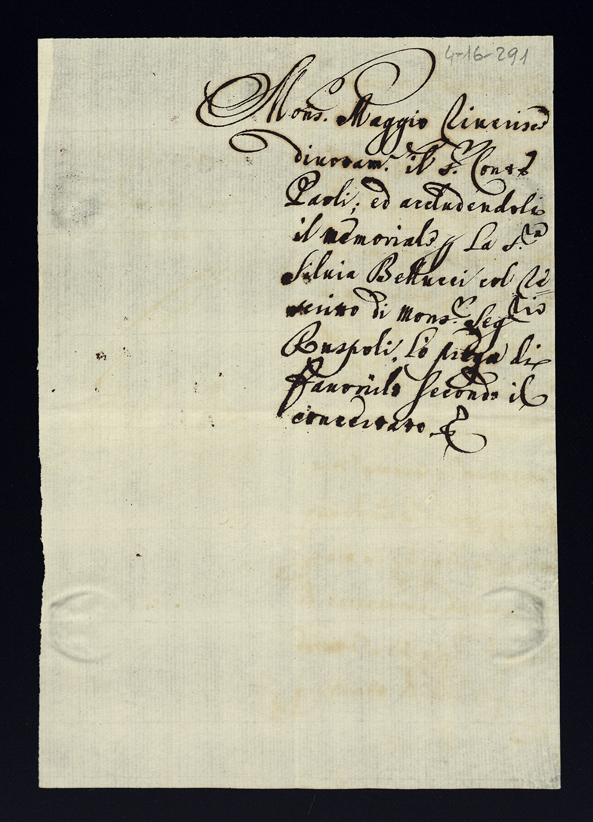 4-16-291
Mons.r Maggio riverisce
divotam.te il S.r Conte
Paoli; ed accludendoli
il memoriale della S.ra
Silvia Bellucci col
di Mons.r Seg.rio
Ruspoli, lo prega di
favorirlo secondo il
concertato